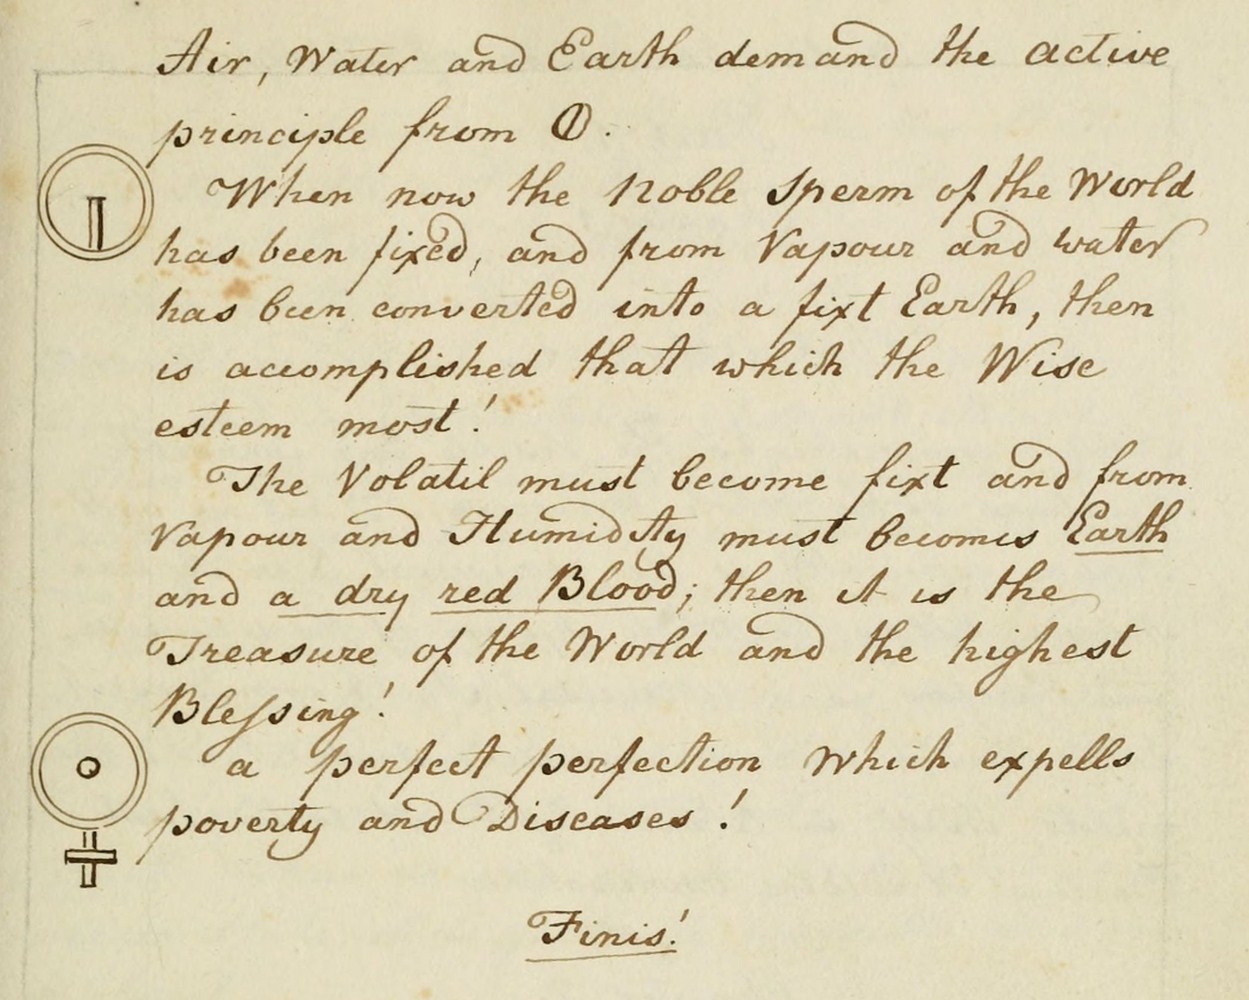 Air, Water and Earth demand the active
principle from ⦶.
When now the Noble Sperm of the World
has been fixed, and from Vapour and water
has been converted into a fixt Earth, then
is accomplished that which the Wise
esteem most!
The Volatil must become fixt and from
Vapour and Humidity must becomes Earth
and a dry red Blood; then it is the
Treasure of the World and the highest
Bleſsing!
a perfect perfection which expells
poverty and Diseases!
Finis!